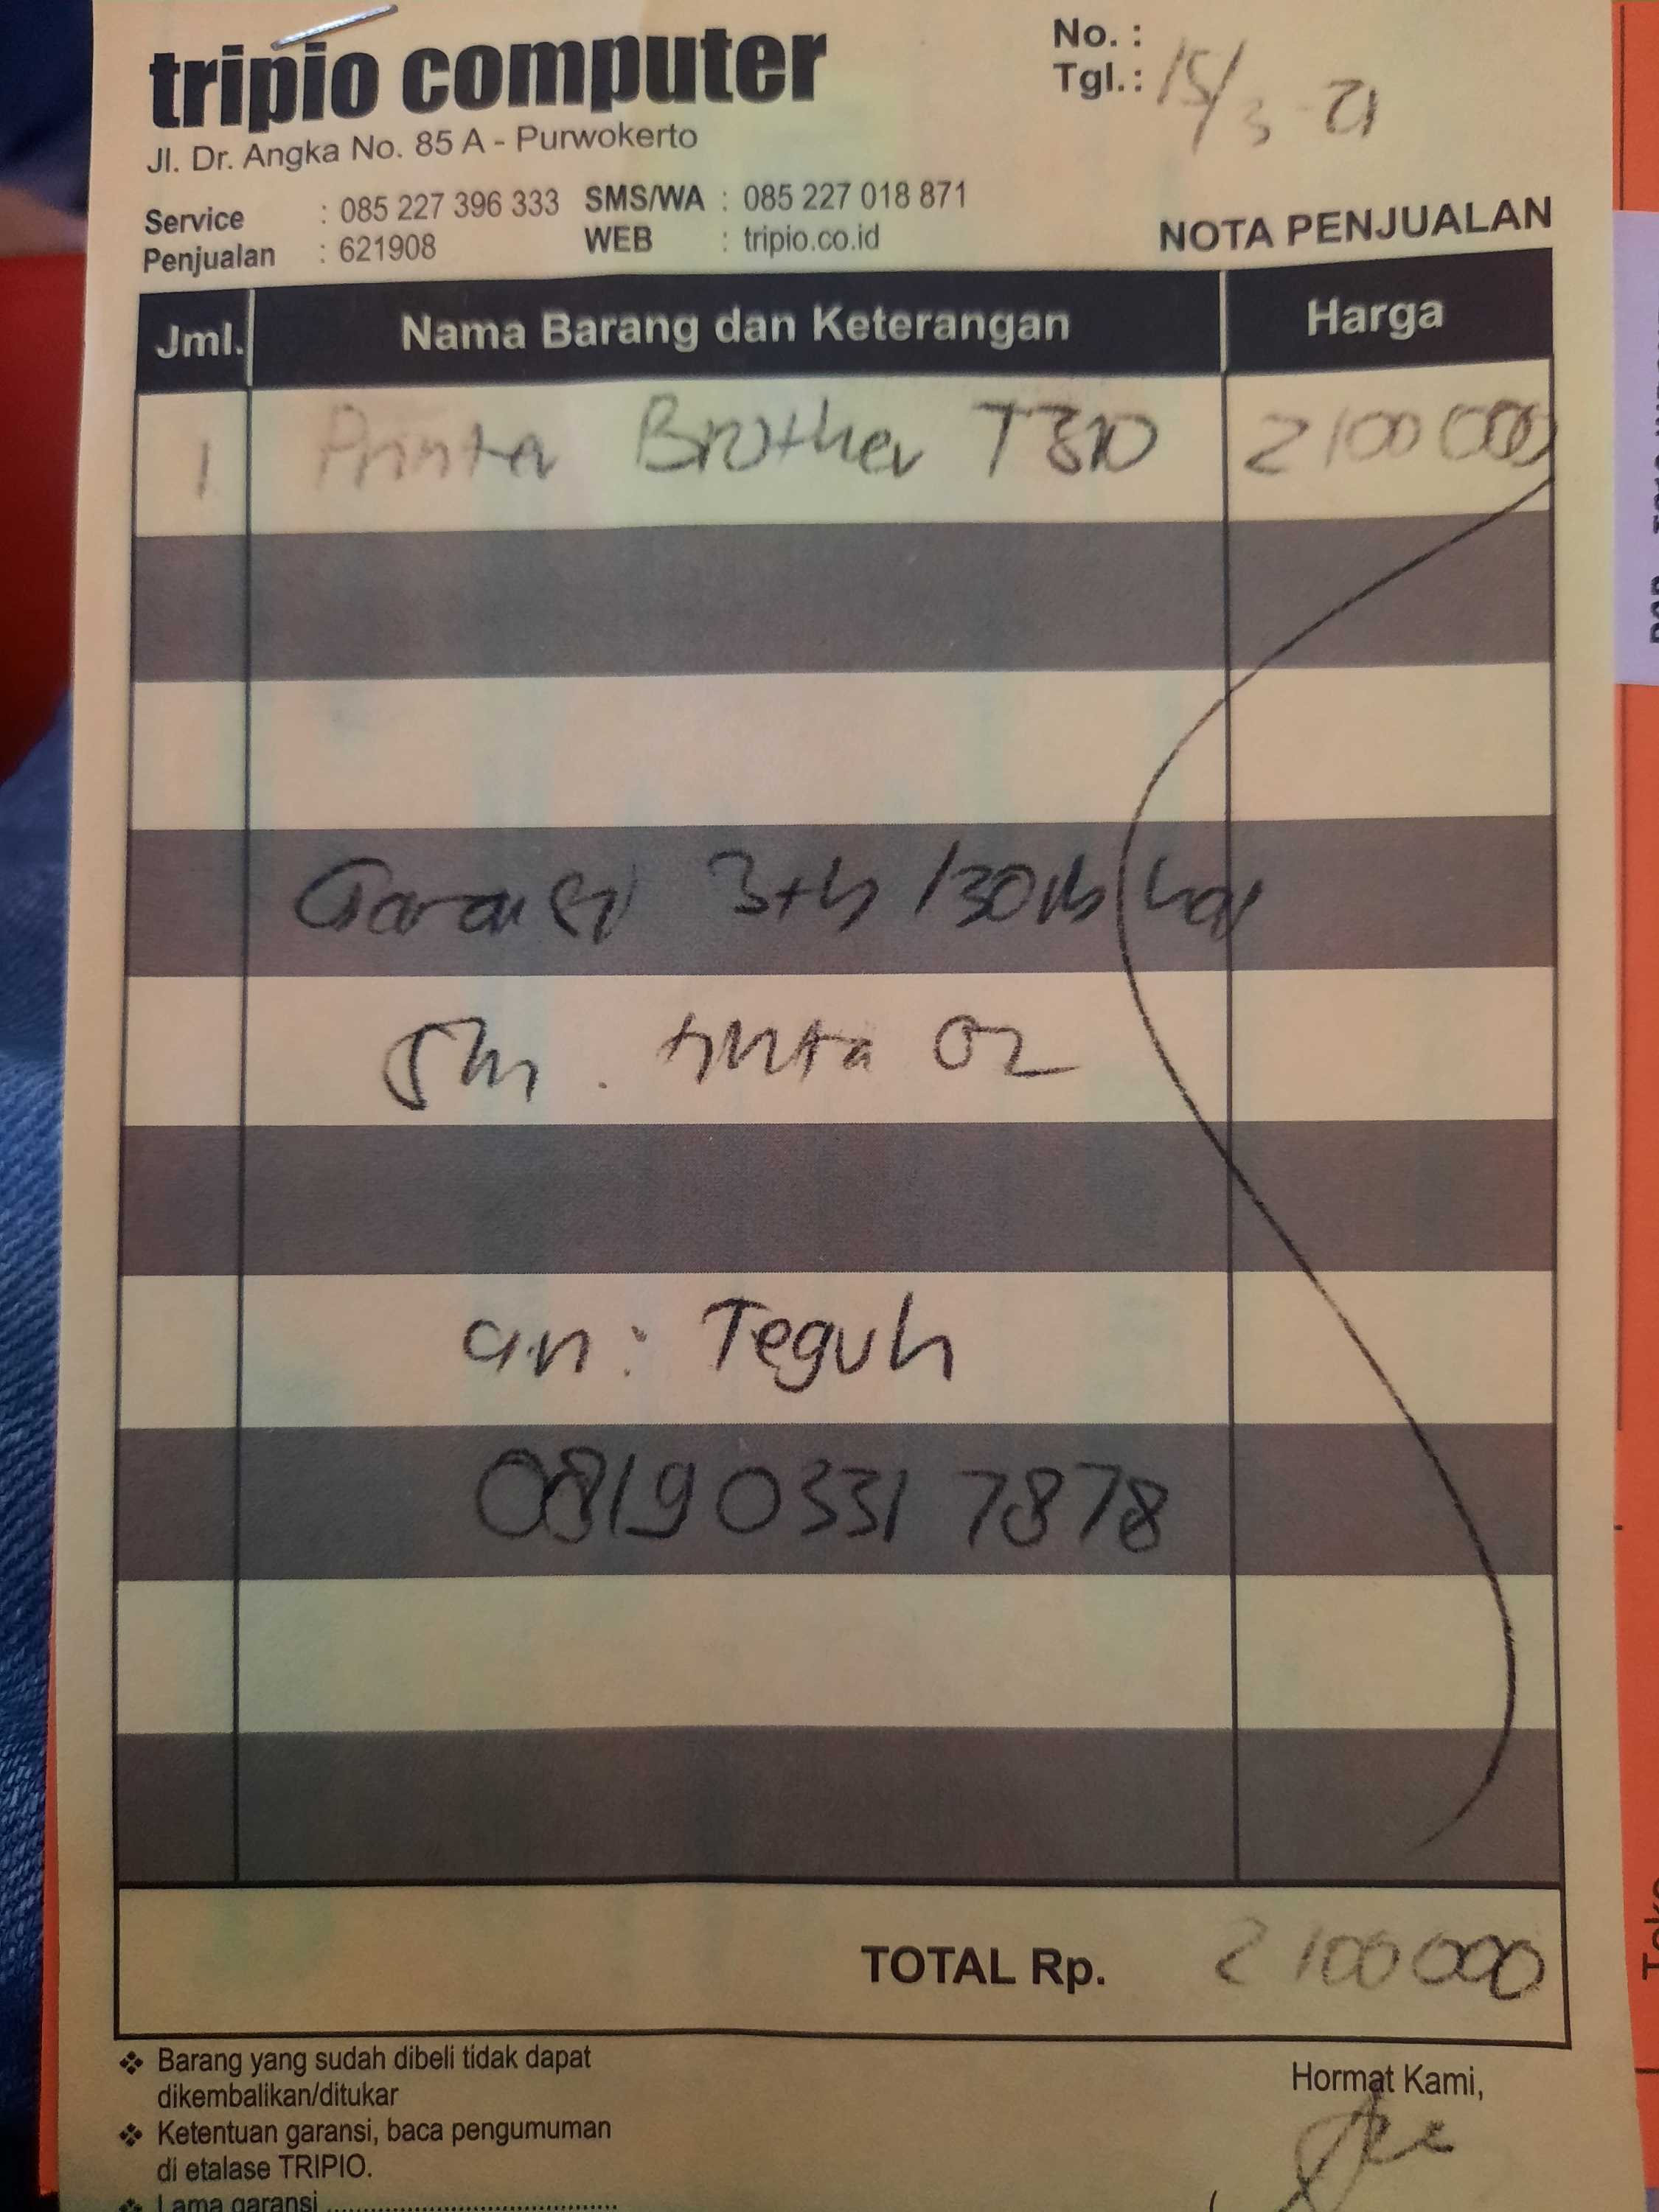 tripio computer
Jl. Dr. Angka No. 85 A - Purwokerto
No. :
Tgl. : 15/3-21
Service : 085 227 396 333 SMS/WA : 085 227 018 871
Penjualan : 621908 WEB : tripio.co.id
NOTA PENJUALAN
Jml. Nama Barang dan Keterangan Harga
1 Printer Brother T310 2100000
Garansi 3th /30rb hal
tinta 02
an: Teguh
0819 0331 7878
TOTAL Rp. 2100000
❖ Barang yang sudah dibeli tidak dapat
dikembalikan/ditukar
❖ Ketentuan garansi, baca pengumuman
di etalase TRIPIO.
❖ Lama garansi
Hormat Kami,